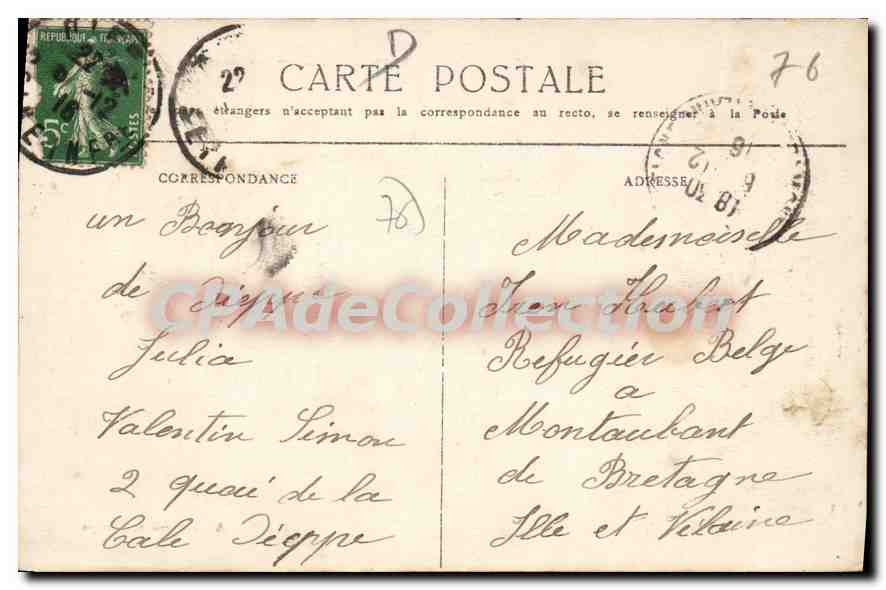 REPUBLIQUE FRANÇAISE
5c POSTES
22
12
16
D
22
76
CARTE POSTALE
étrangers n'acceptant pas la correspondance au recto, se renseigner à la Poste
18 30
6 12
16
CORRESPONDANCE
ADRESSE
76
un Bonjour
de Dieppe
Julia
Valentin Simon
2 quai de la
Cale Dieppe
Mademoiselle
Iren Hubert
Refugiér Belge
a
Montaubant
de Bretagne
Ille et Vilaine
CPAdeCollection